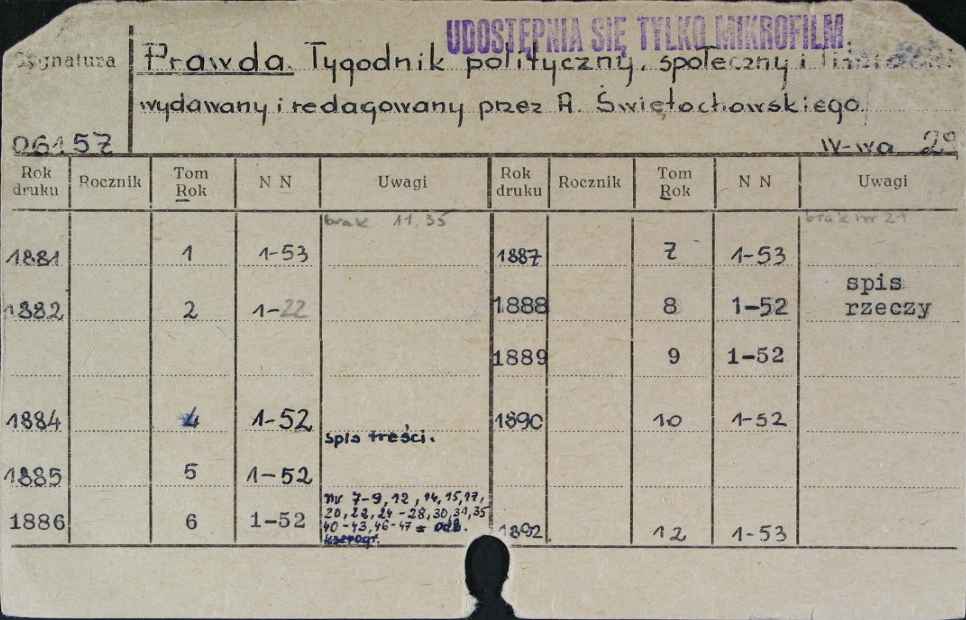 UDOSTĘPNIA SIĘ TYLKO MIKROFILM
Sygnatura
Prawda. Tygodnik polityczny, społeczny i
wydawany i redagowany przez A. Świętochowskiego.
06157
W-wa 29
Rok druku Rocznik Tom Rok N N Uwagi Rok druku Rocznik Tom Rok N N Uwagi
brak 11, 35
brak nr 21
1881 1 1-53 1887 7 1-53
spis
1882 2 1-22 1888 8 1-52 rzeczy
1889 9 1-52
1884 4 1-52 1890 10 1-52
spis treści.
1885 5 1-52
nr 7-9, 12, 14, 15, 17,
1886 6 1-52 20, 22, 24-28, 30, 31, 35
40-43, 46-47 = odb. 1892 12 1-53
kserogr.